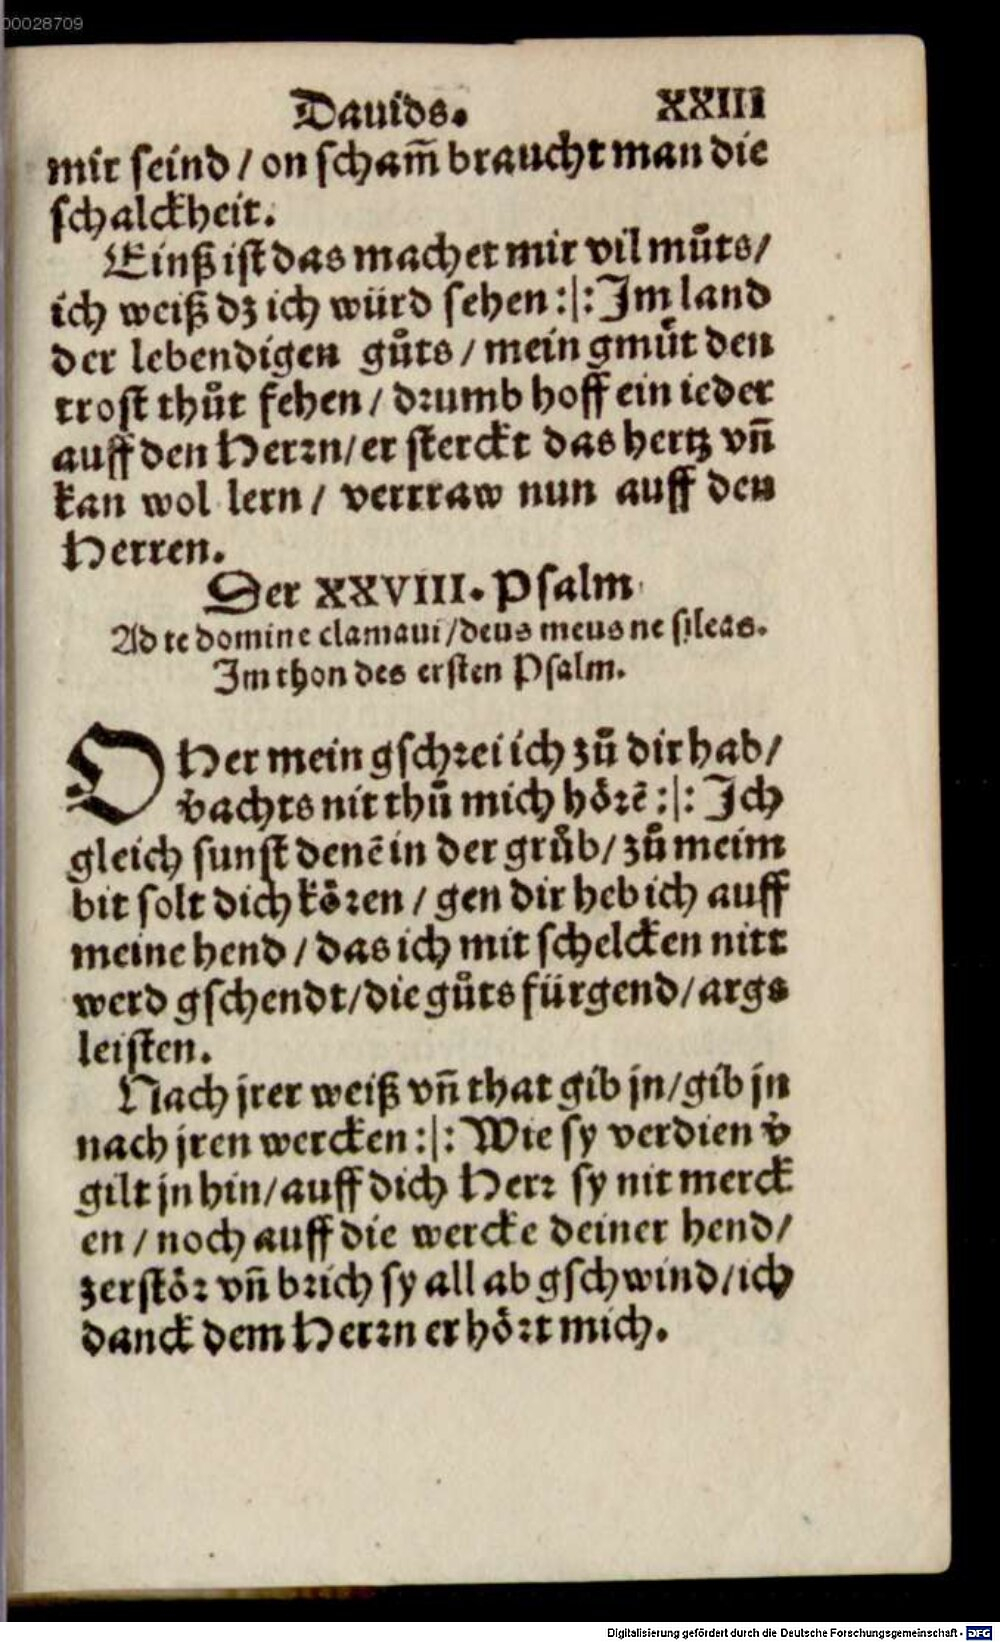 00028709
Dauids. XXIII
mir seind / on scham̄ braucht man die
schalckheit.
Einß ist das machet mir vil můts/
ich weiß dz ich würd sehen :|: Im land
der lebendigen gůts / mein gmüt den
trost thůt fehen / drumb hoff ein ieder
auff den Herrn/ er sterckt das hertz vn̄
kan wol lern / verrraw nun auff den
Herren.
Der XXVIII. Psalm
Ad te domine clamaui /deus meus ne sileas.
Im thon des ersten Psalm.
O Her mein gschrei ich zů dir hab/
v̓achts nit thů mich hörē :|: Ich
gleich sunst denē in der grůb/ zů meim
bit solt dich kören / gen dir heb ich auff
meine hend / das ich mit schelcken nitt
werd gschendt/die gůts fürgend/ args
leisten.
Nach jrer weiß vn̄ that gib jn/gib jn
nach jren wercken :|: Wie sy verdien v̓
gilt jn hin/auff dich Herr sy nit merck
en / noch auff die wercke deiner hend/
zerstör vn̄ brich sy all ab gschwind/ich
danck dem Herrn er hört mich.
Digitalisierung gefördert durch die Deutsche Forschungsgemeinschaft - DFG